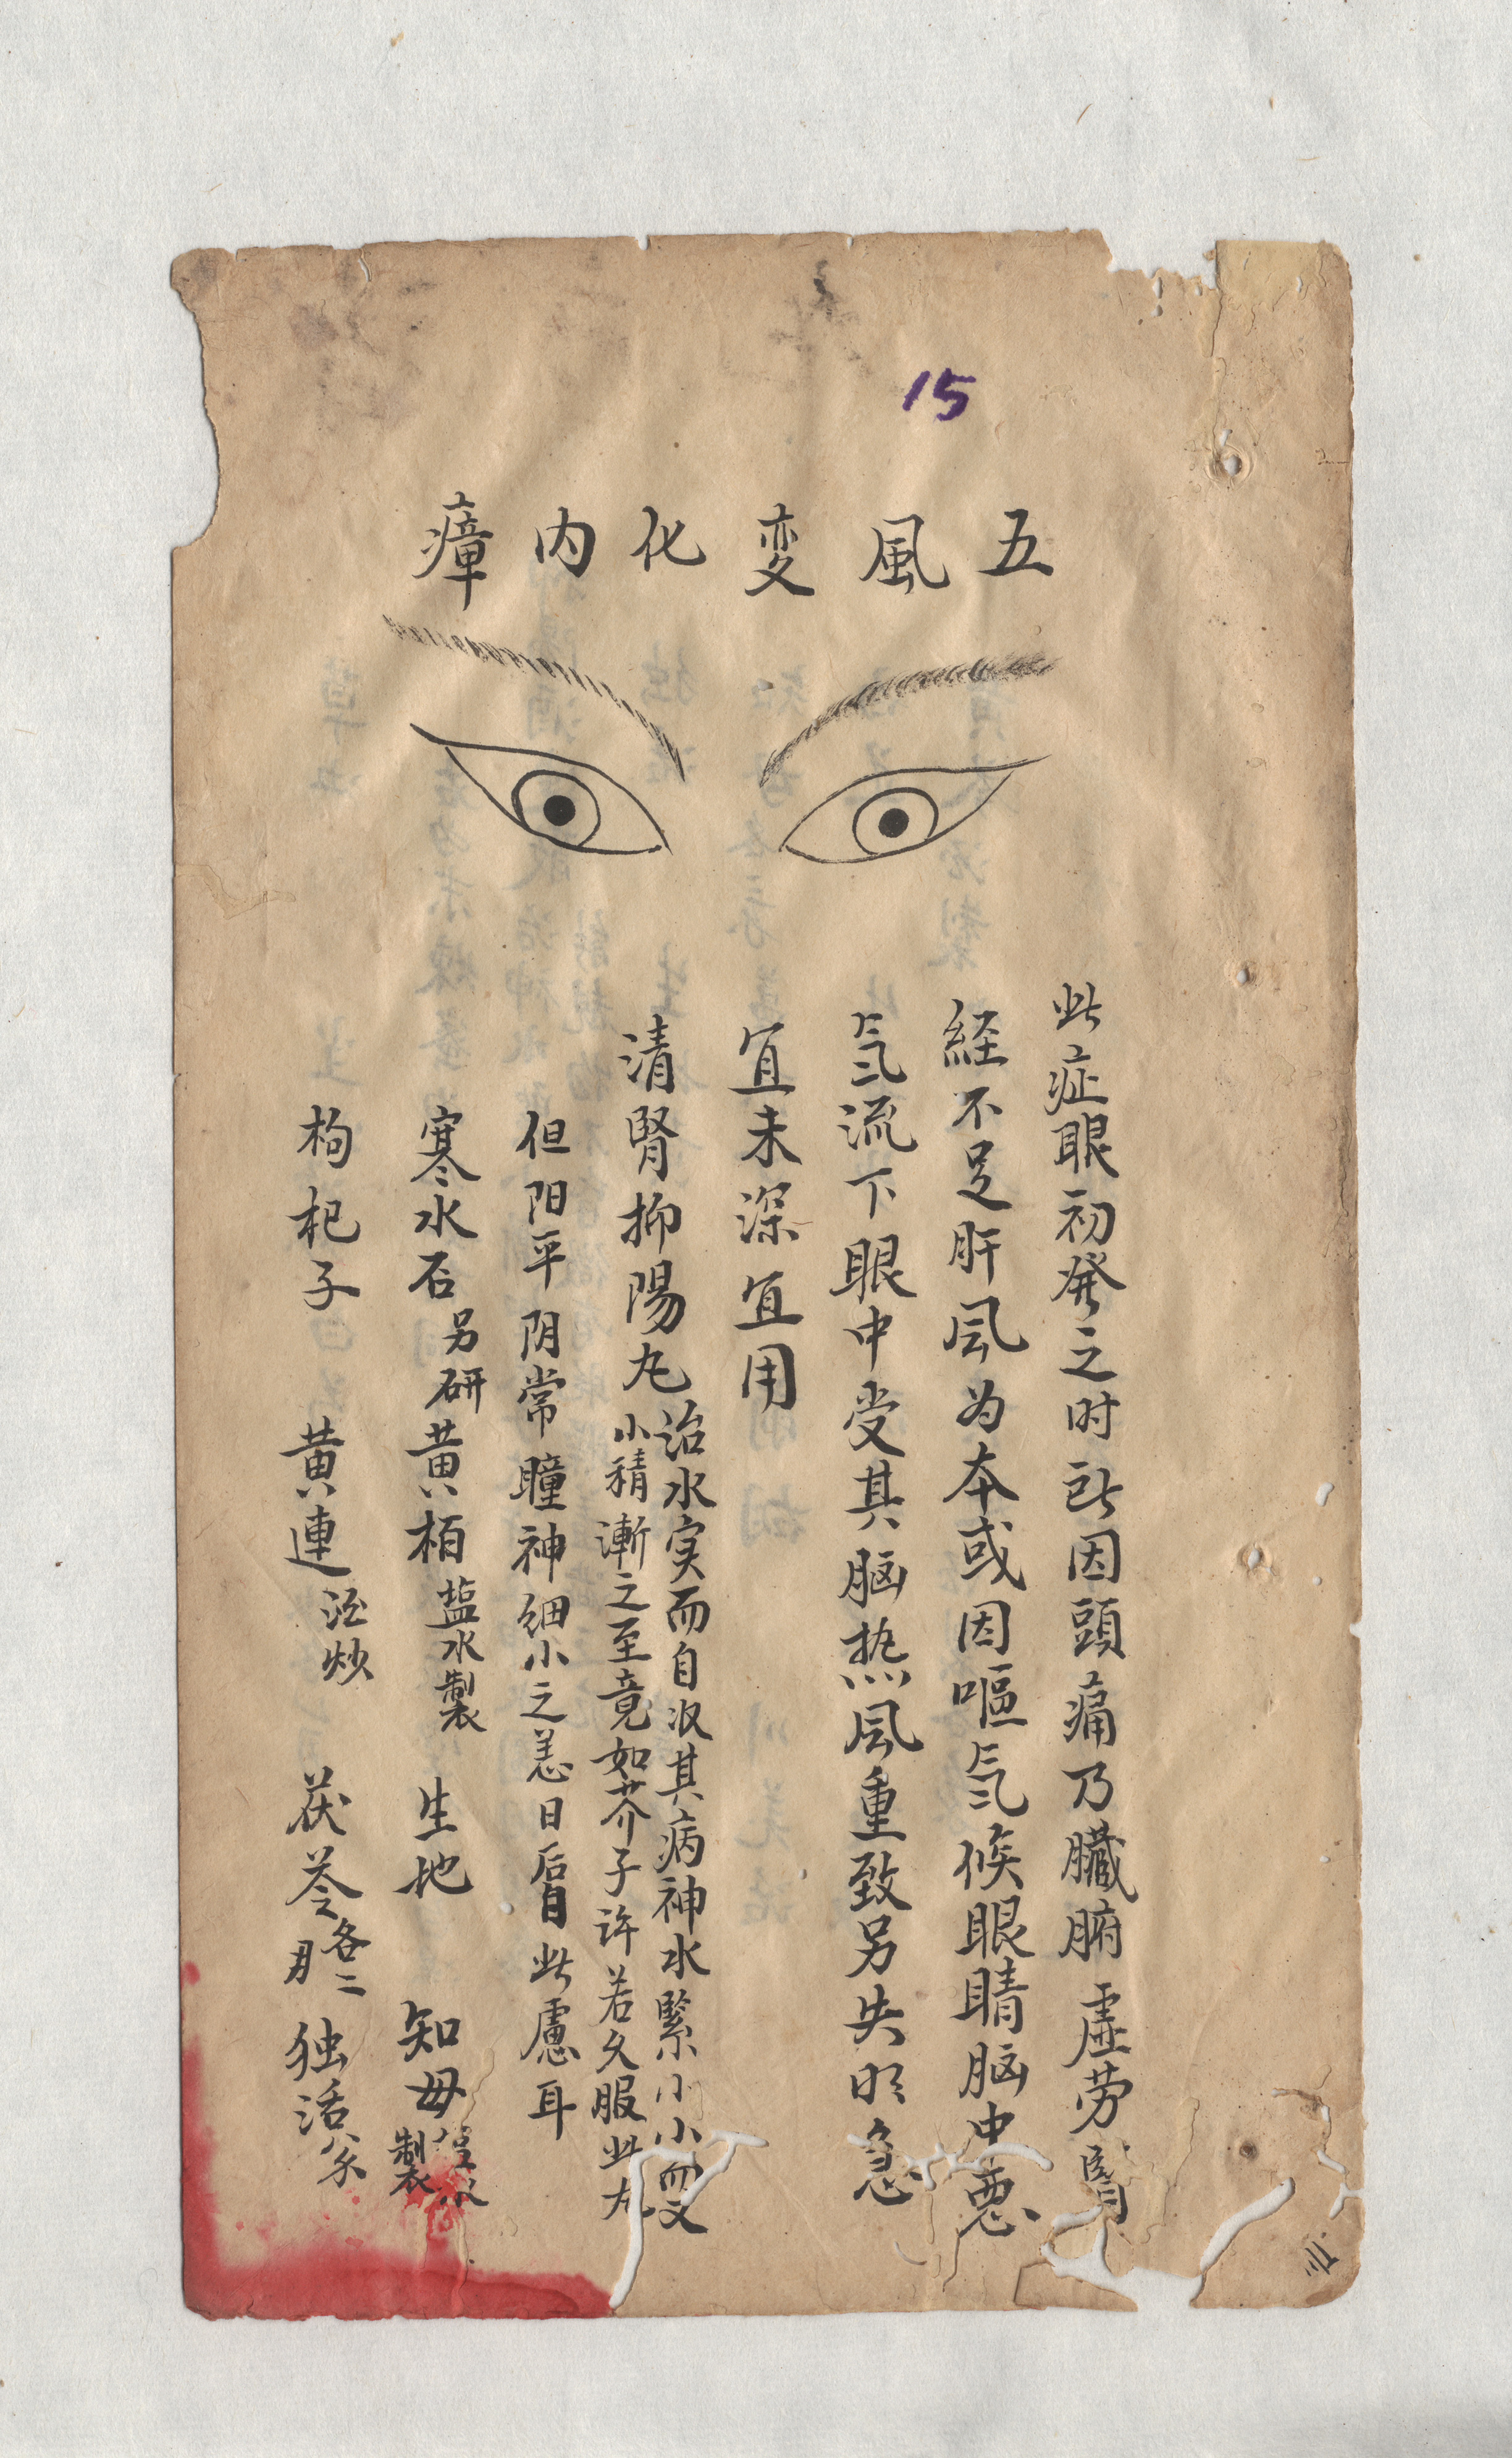 15
五風変化内瘴
此症眼初発之时此因頭痛乃臓腑虚劳腎
経不足肝风为本或因嘔氣候眼睛脑中悪
氣流下眼中受其脑热风重致另失明急
宜未深宜用
清腎抑陽丸
治水实而自收其病神水緊小小而又
小積漸之至竟如芥子许若久服此丸
但阳平阴常瞳神细小之恙日后目此慮耳
寒水石另研黄栢塩水製 生地 知母
製
枸杞子 黄連酒炒 茯苓各二 独活八分